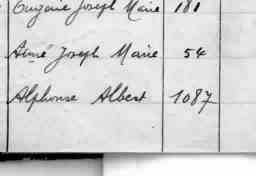 Eugène Joseph Marie 181
Aimé Joseph Marie 54
Alphonse Albert 1087